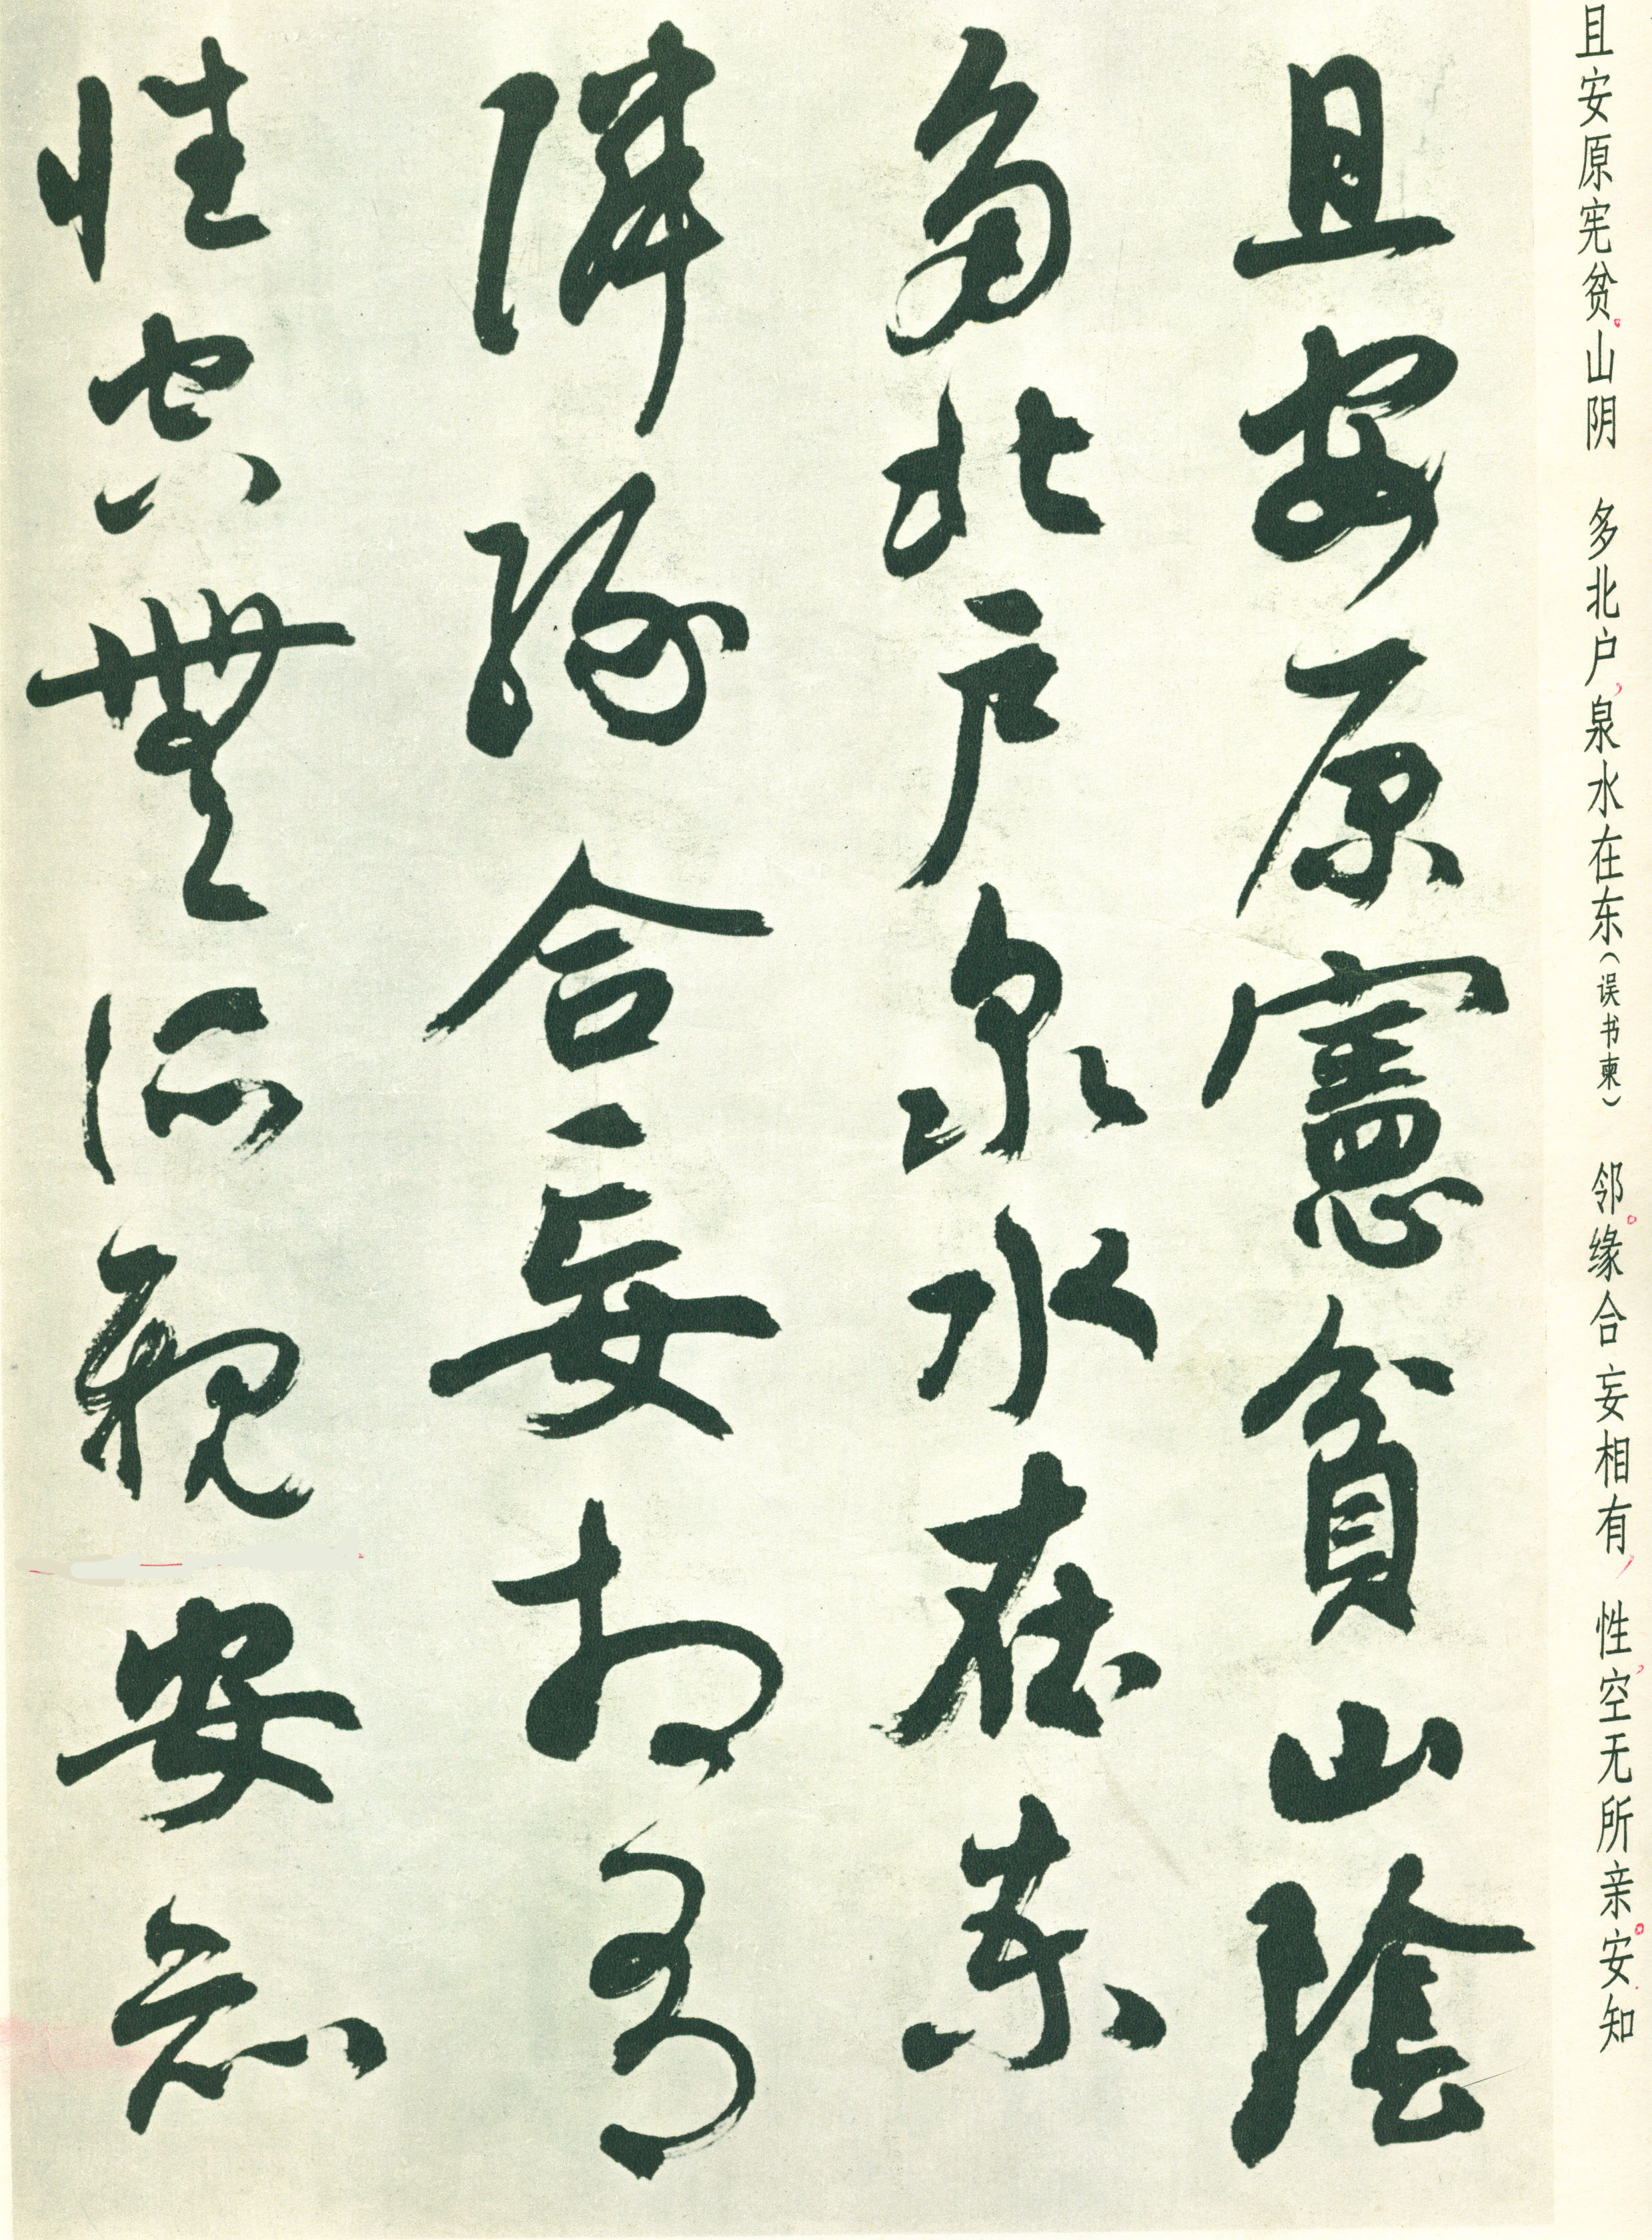 且安原宪贫。山阴 多北户，泉水在东（误书柬） 邻。缘合妄相有， 性空无所亲。安知
且安原憲貧山陰
多北戶泉水在柬
隣緣合妄相有
性空無所親安知